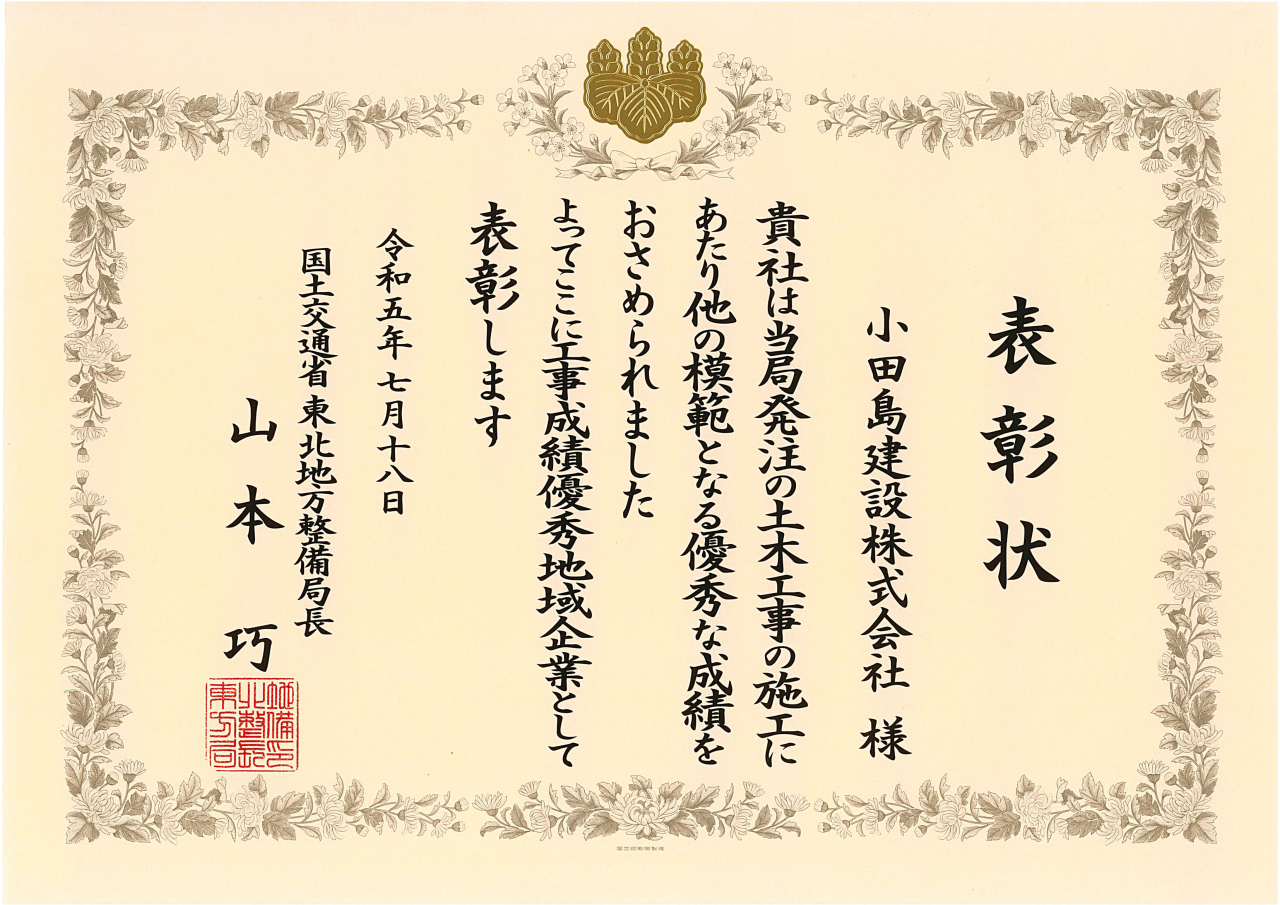 表彰状
小田島建設株式会社 様
貴社は当局発注の土木工事の施工に
あたり他の模範となる優秀な成績を
おさめられました
よってここに工事成績優秀地域企業として
表彰します
令和五年七月十八日
国土交通省 東北地方整備局長
山本 巧
東北地方整備局長印
国立印刷局製造